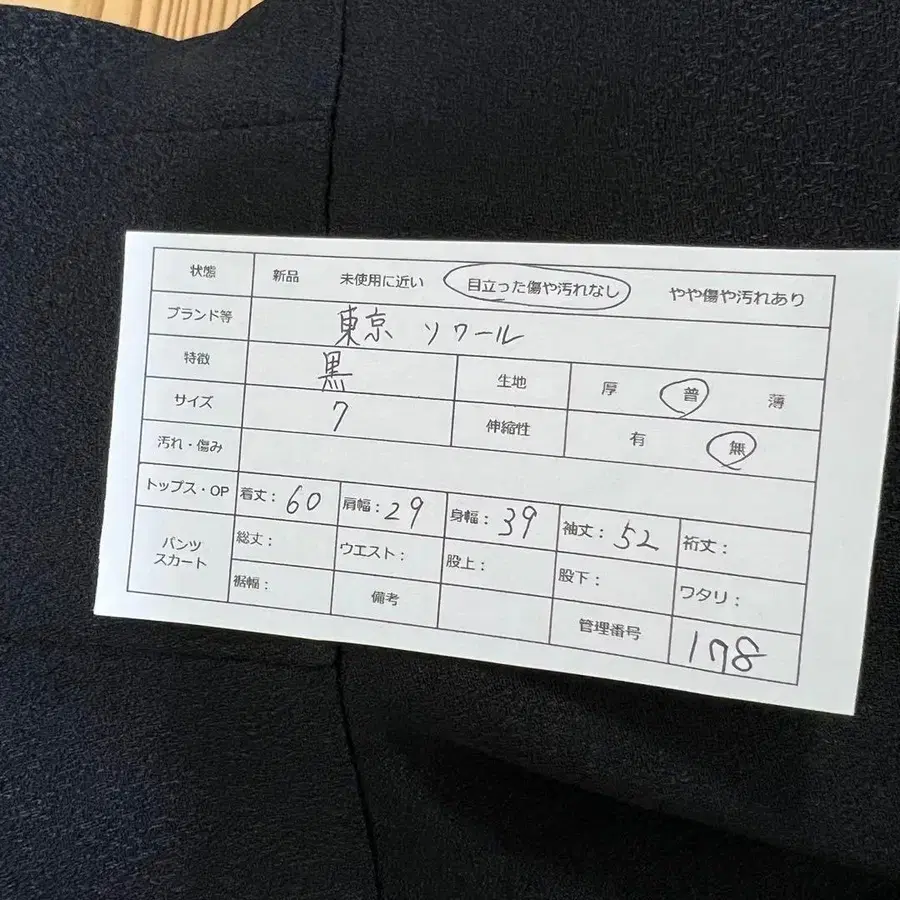 状態 新品 未使用に近い 目立った傷や汚れなし やや傷や汚れあり
ブランド等 東京 ソワール
特徴 黒 生地 厚 普 薄
サイズ 7 伸縮性 有 無
汚れ・傷み
トップス・OP 着丈： 60 肩幅： 29 身幅： 39 袖丈： 52 裄丈：
パンツ スカート 総丈： ウエスト： 股上： 股下： ワタリ：
裾幅： 備考 管理番号 178